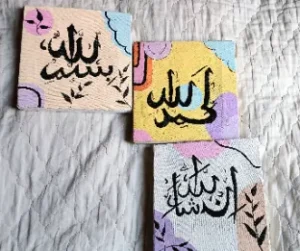 بسم الله
الحمد لله
ان شاء الله